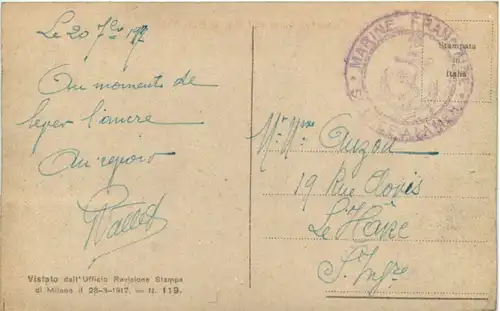 Le 20 7bre 1917
Au moment de
lever l'ancre
Au revoir
MARINE FRANÇAISE
SERVICE A LA MER
Stampata
in
Italia
Mr Mme Auzou
19 Rue Clovis
Le Havre
S. Infre
Vistato dall'Ufficio Revisione Stampa
di Milano il 28-3-1917. — N. 119.